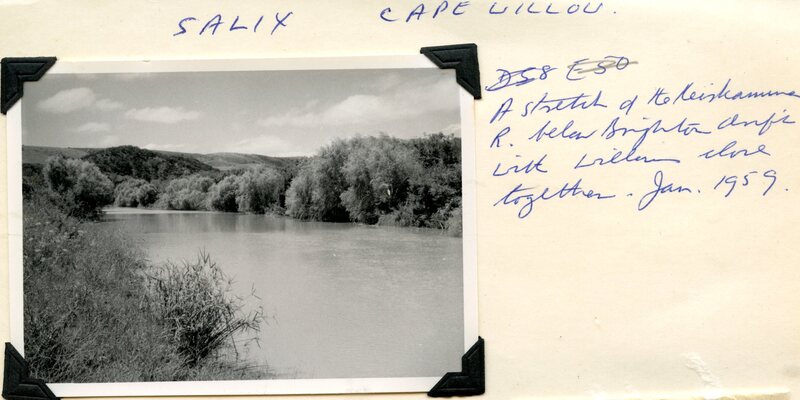 SALIX CAPE WILLOW.
D58 E50
A stretch of the Keiskamma
R. below Brighton drift
with willows close
together. Jan. 1959.